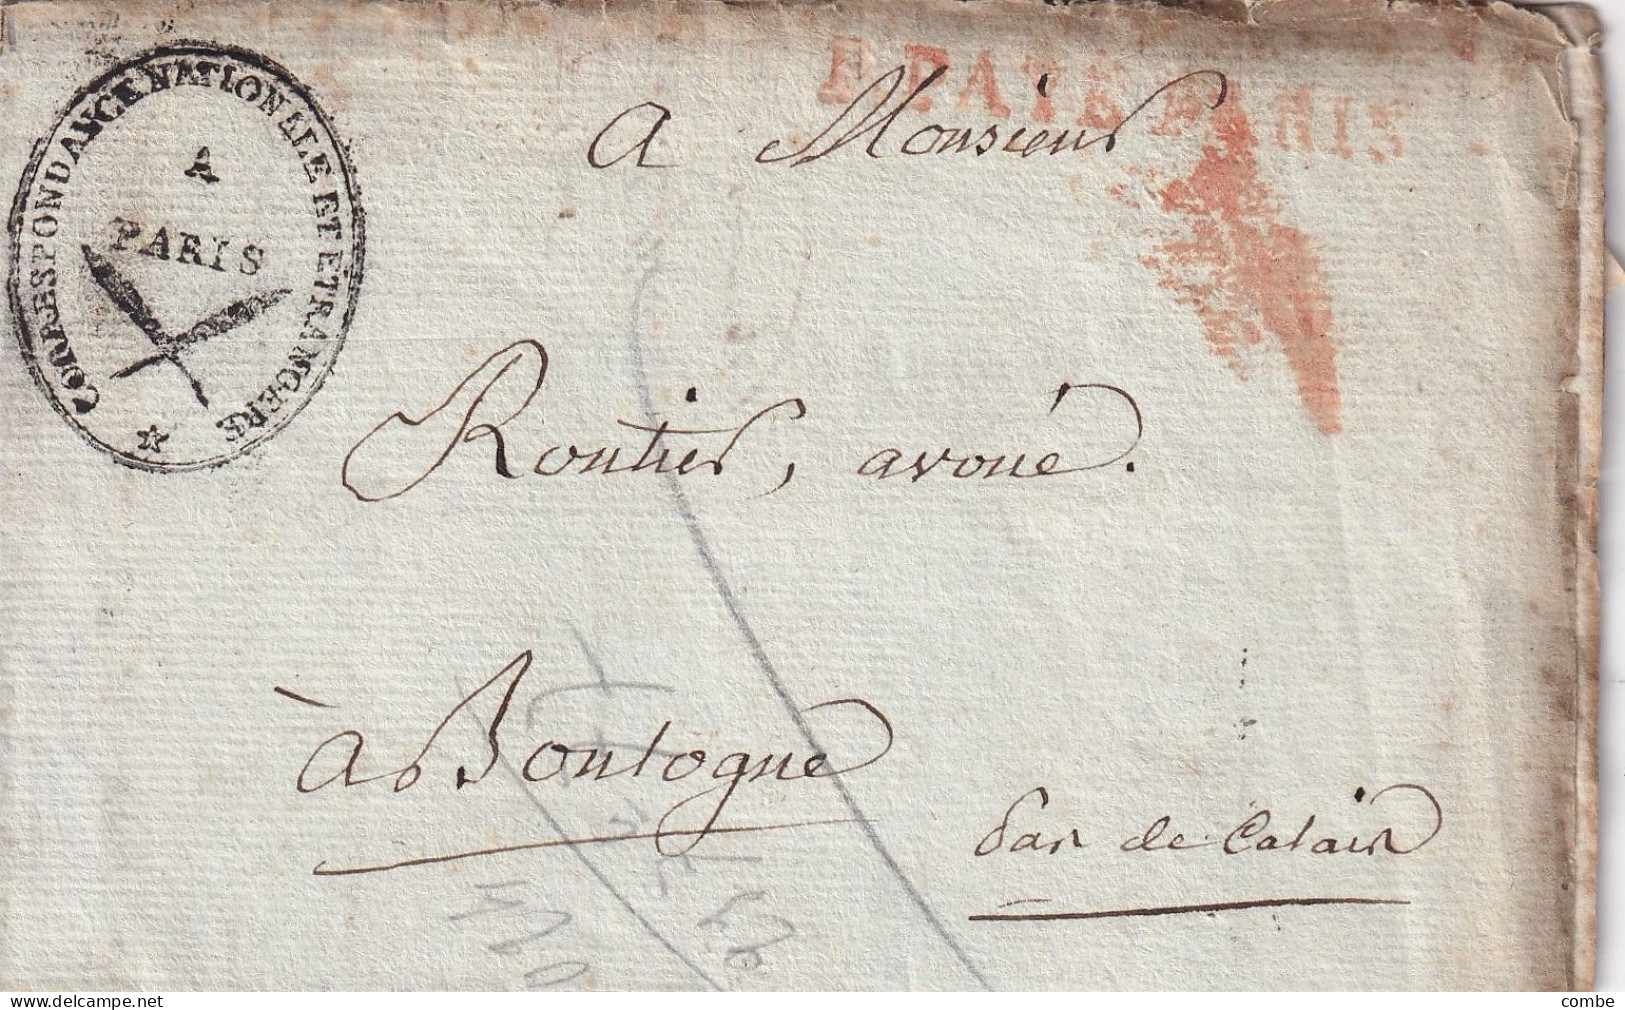 CORRESPONDANCE NATIONALE ET ETRANGERE
A
PARIS
P. PAYÉ PARIS
A Monsieur
Routier, avoué.
à Boulogne
pas de Calais
combe